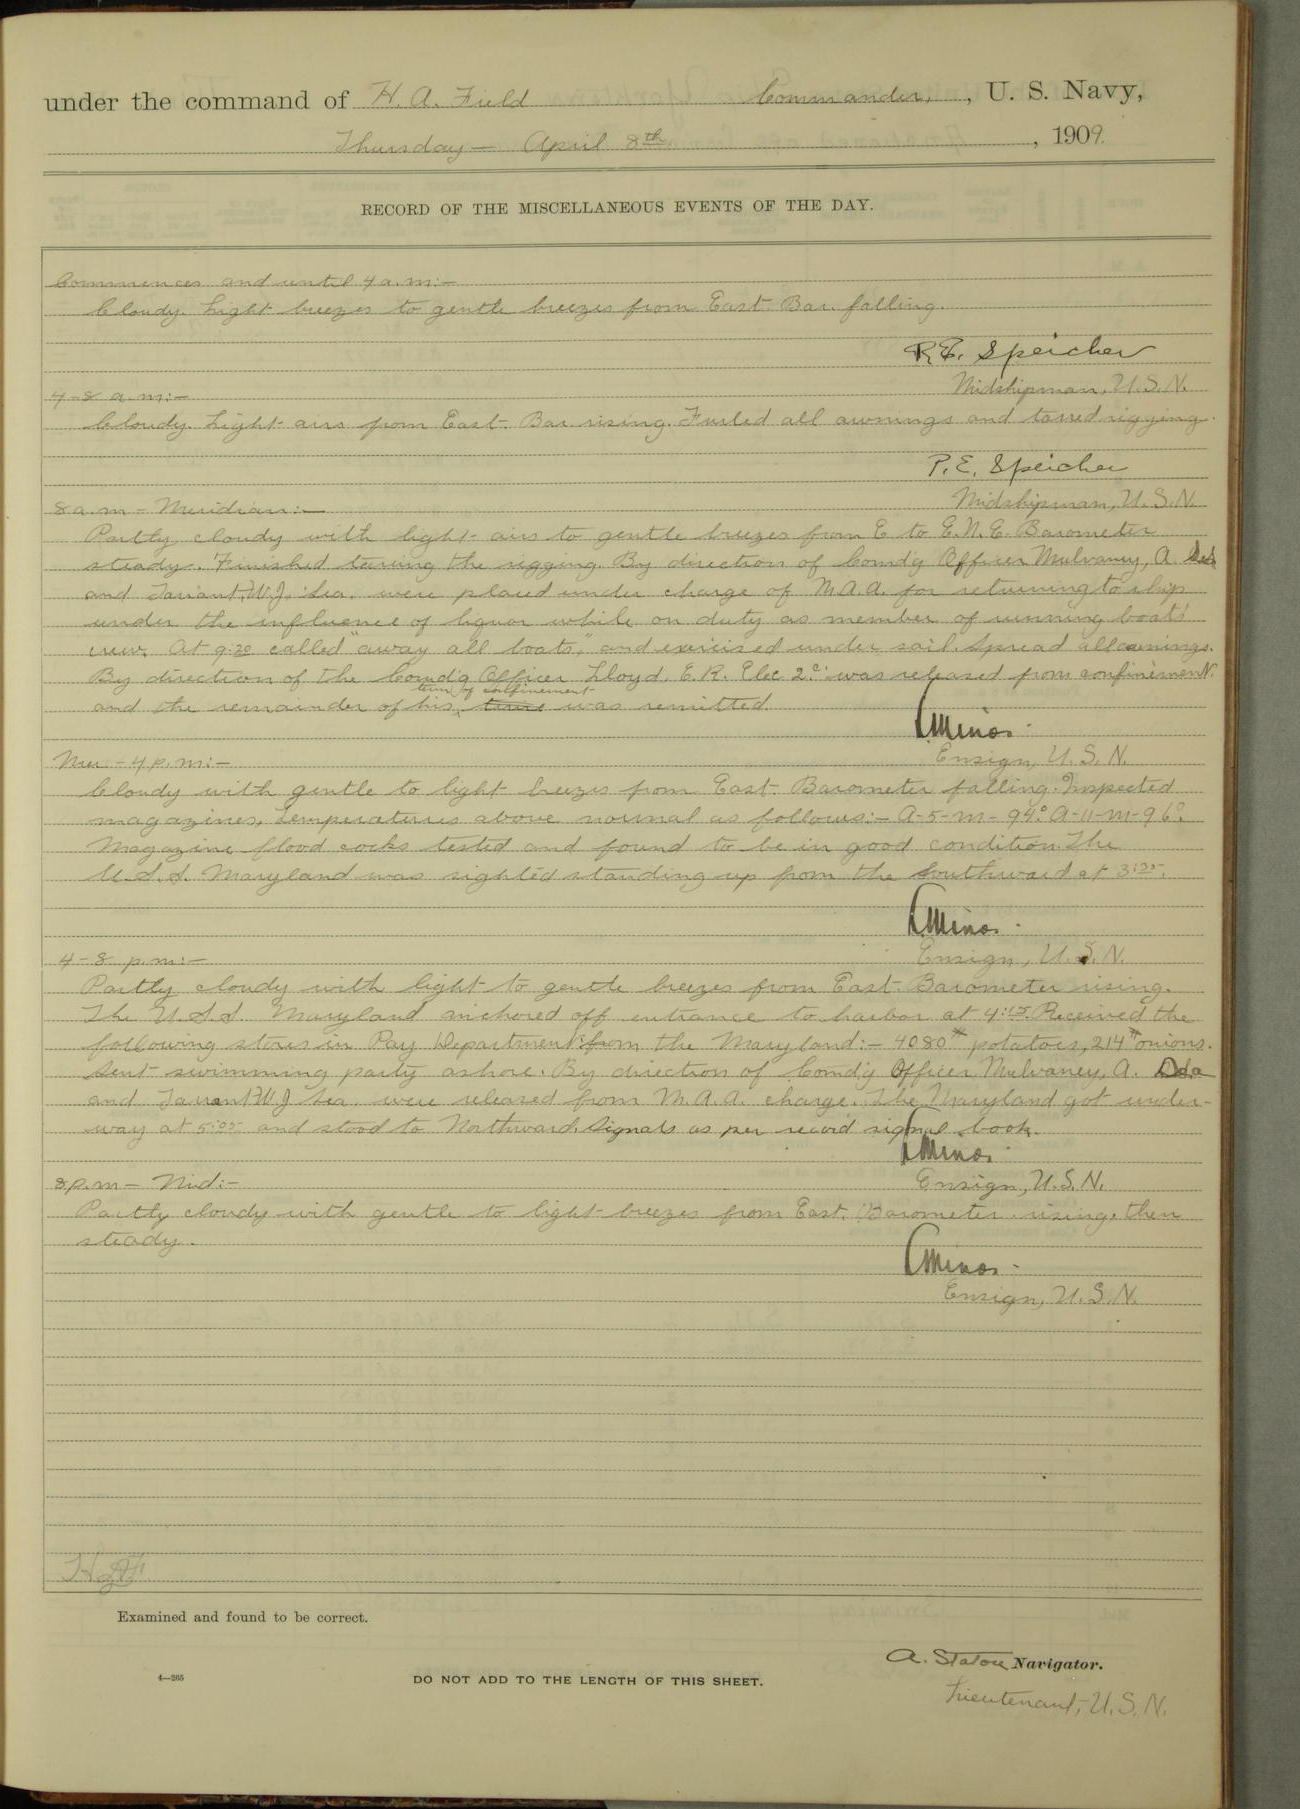 under the command of H. A. Field Commander, , U. S. Navy,
Thursday — April 8th , 1909.
RECORD OF THE MISCELLANEOUS EVENTS OF THE DAY.
Commences and until 4 a.m:—
Cloudy. Light breezes to gentle breezes from East. Bar. falling.
R.E. Speicher
Midshipman, U.S.N.
4-8 a.m:—
Cloudy. Light airs from East. Bar. rising. Furled all awnings and tarred rigging.
P.E. Speicher
Midshipman, U.S.N.
8 a.m — Meridian:—
Partly cloudy with light airs to gentle breezes from E to E.N.E. Barometer
steady. Finished tarring the rigging. By direction of Comd'g Officer Mulvaney, A.
and Tarrant, W.J. Sea. were placed under charge of M.A.A. for returning to ship
under the influence of liquor while on duty as member of running boats'
crew. At 9:30 called "away all boats," and exercised under sail. Spread all awnings.
By direction of the Comd'g Officer Lloyd, E.R. Elec 2c. was released from confinement.
term of confinement
and the remainder of his was remitted.
Minor.
Ensign, U.S.N.
Mer - 4 p.m:—
Cloudy with gentle to light breezes from East. Barometer falling. Inspected
magazines, temperatures above normal as follows:— A-5-m- 94° A-11-m-96°.
Magazine flood cocks tested and found to be in good condition. The
U.S.S. Maryland was sighted standing up from the Southward at 3:25.
Minor.
Ensign, U.S.N.
4-8 p.m:—
Partly cloudy with light to gentle breezes from East. Barometer rising.
The U.S.S. Maryland anchored off entrance to harbor at 4:15. Received the
following stores in Pay Department from the Maryland:— 4080# potatoes, 214# onions.
Sent swimming party ashore. By direction of Comd'g Officer Mulvaney, A.
and Tarrant, W.J. Sea. were released from M.A.A. charge. The Maryland got under-
way at 5:05 and stood to Northward. Signals as per record signal book.
Minor.
Ensign, U.S.N.
8 p.m — Mid:—
Partly cloudy with gentle to light breezes from East. Barometer rising, then
steady.
Minor.
Ensign, U.S.N.
HAF.
Examined and found to be correct.
A. Staton Navigator.
4—265
DO NOT ADD TO THE LENGTH OF THIS SHEET.
Lieutenant, U.S.N.